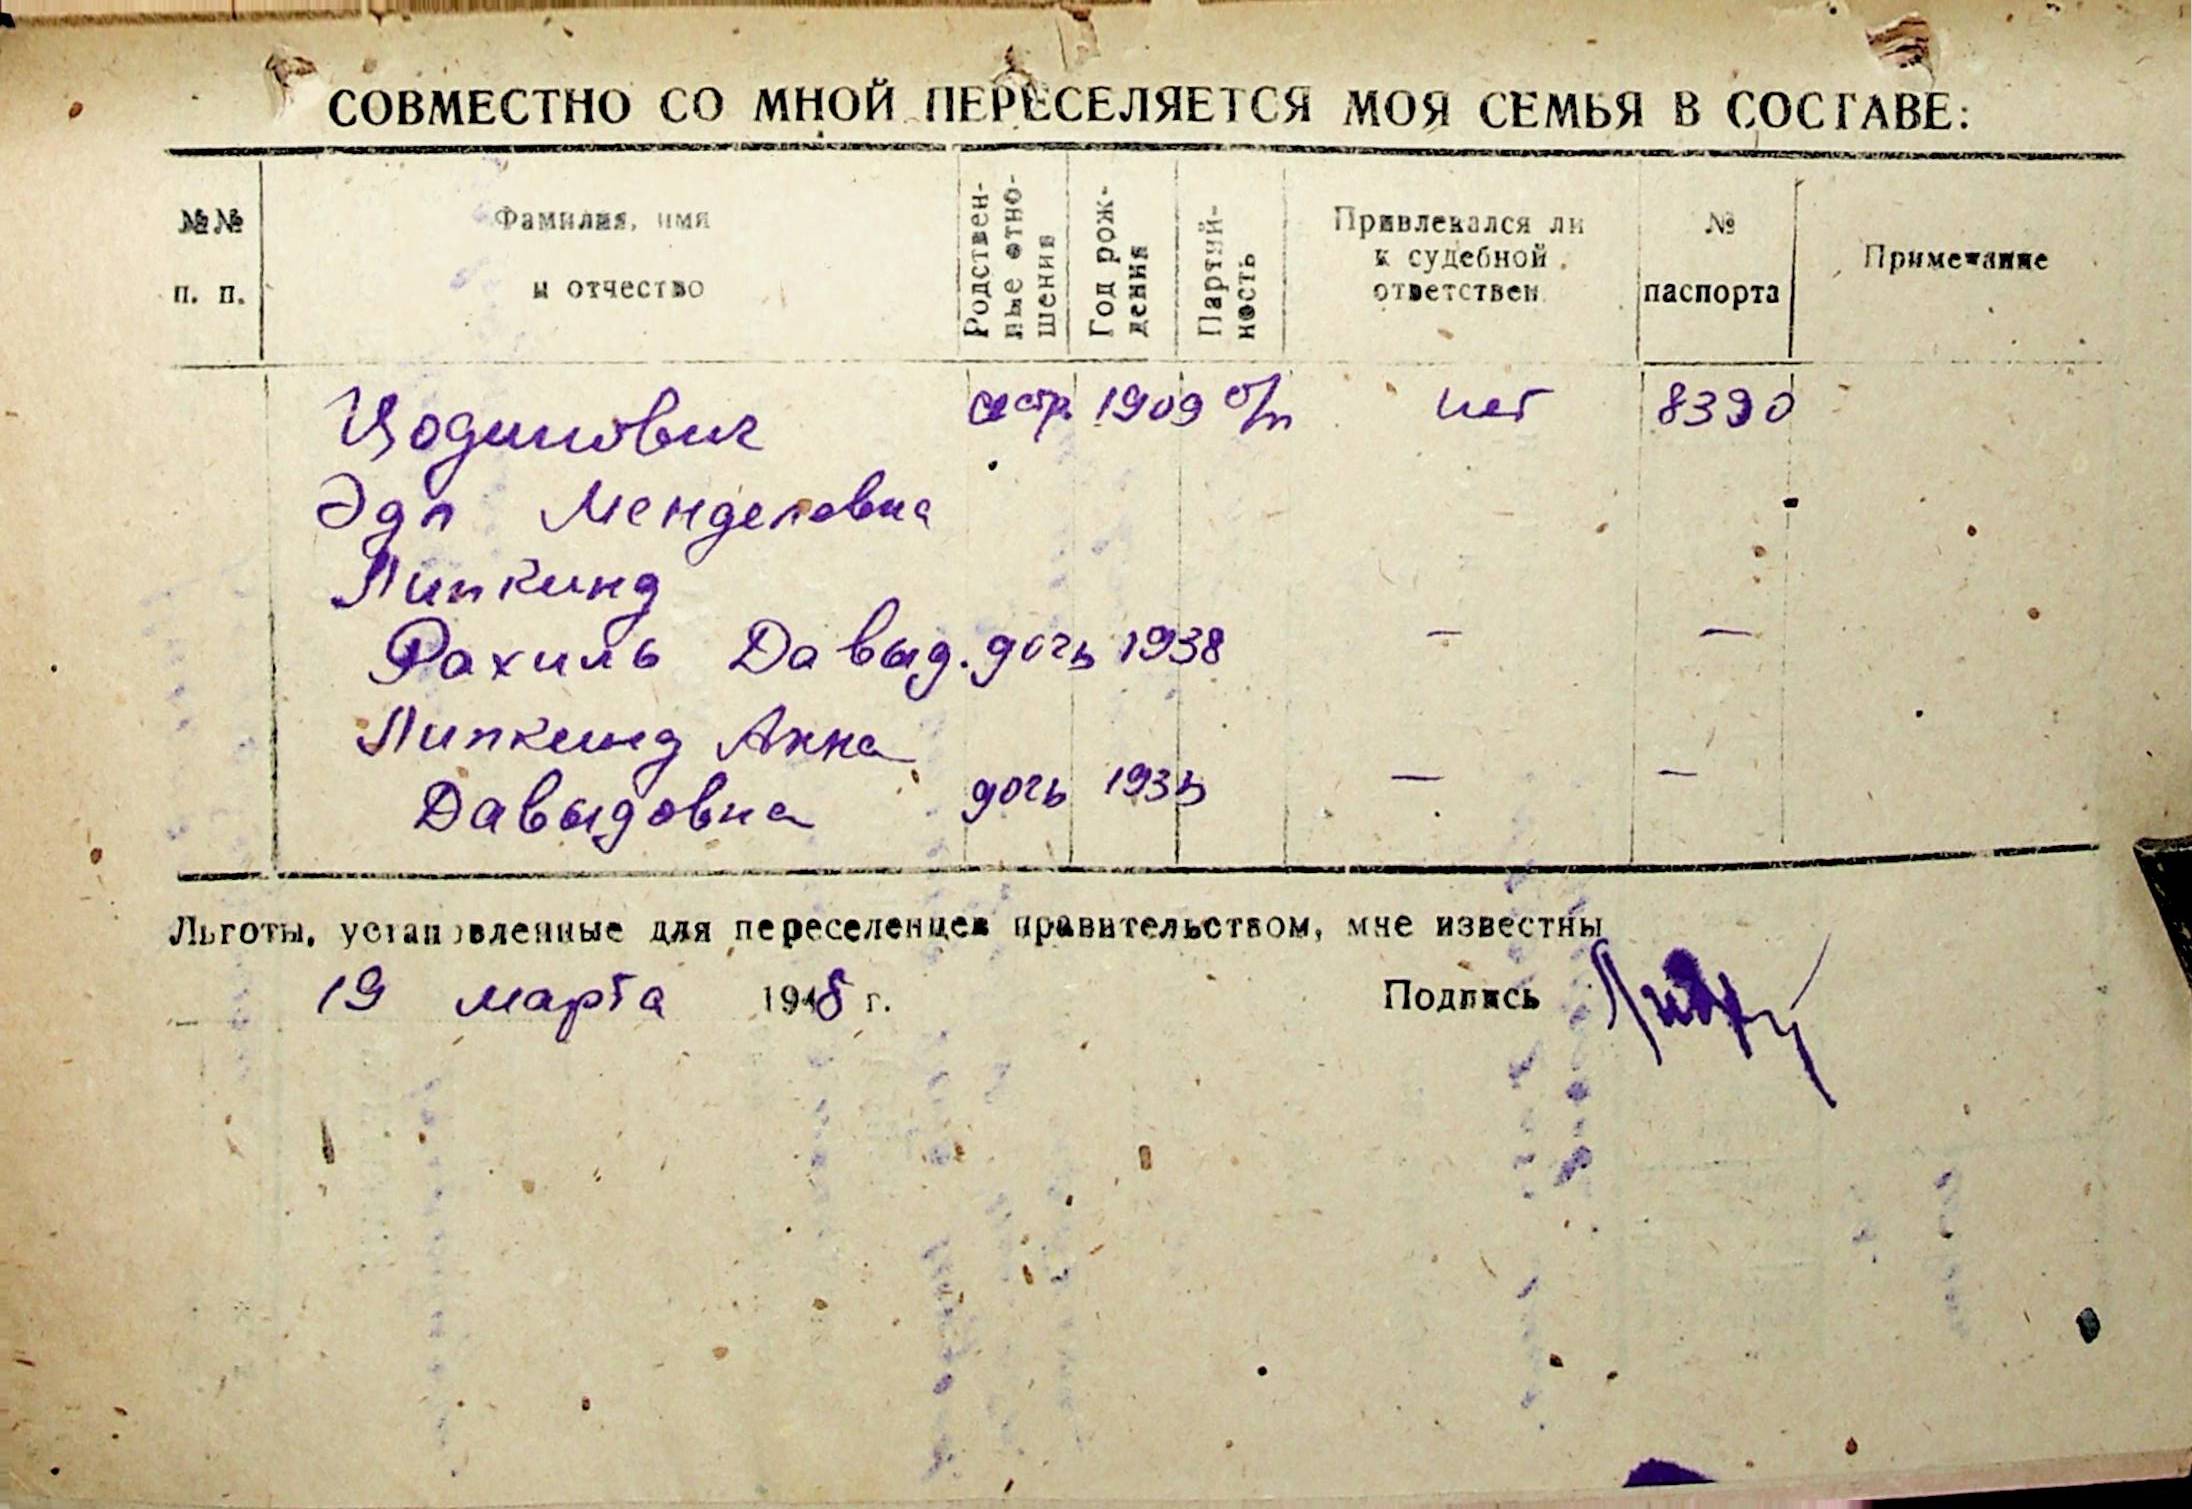 СОВМЕСТНО СО МНОЙ ПЕРЕСЕЛЯЕТСЯ МОЯ СЕМЬЯ В СОСТАВЕ:
№№ п. п.
Фамилия, имя и отчество
Родствен-ные отно-шения
Год рож-дения
Партий-ность
Привлекался ли к судебной ответствен.
№ паспорта
Примечание
Цодикович сестр. 1909 б/п нет 8390
Эдя Менделовна
Липкинд
Рахиль Давыд. дочь 1938 — —
Липкинд Анна
Давыдовна дочь — —
Льготы, установленные для переселенцев правительством, мне известны
19 марта 1948 г. Подпись